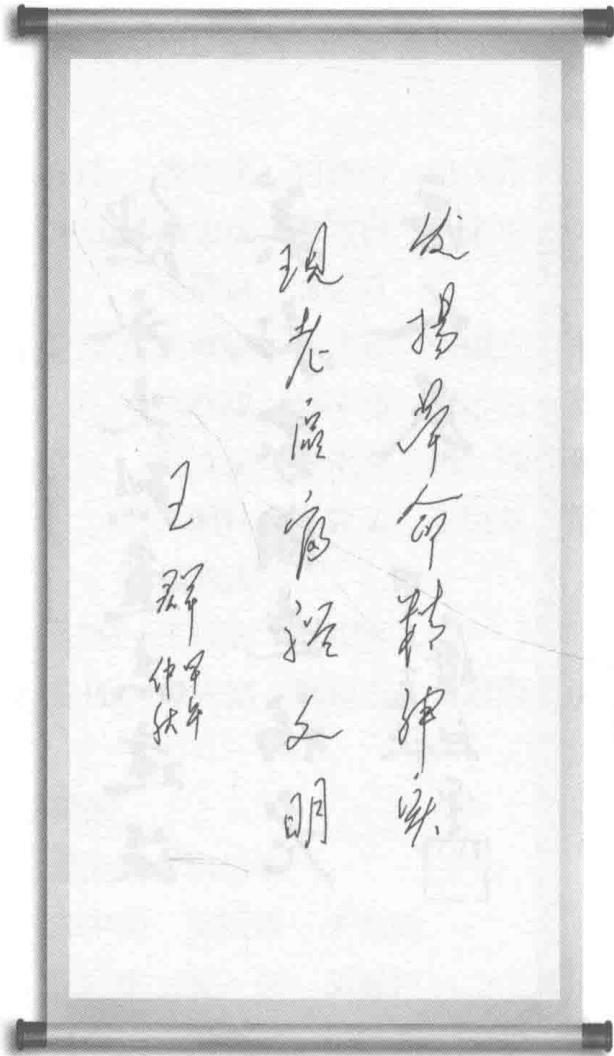 发揚革命精神实
現老区富裕文明
王群
甲午
仲秋